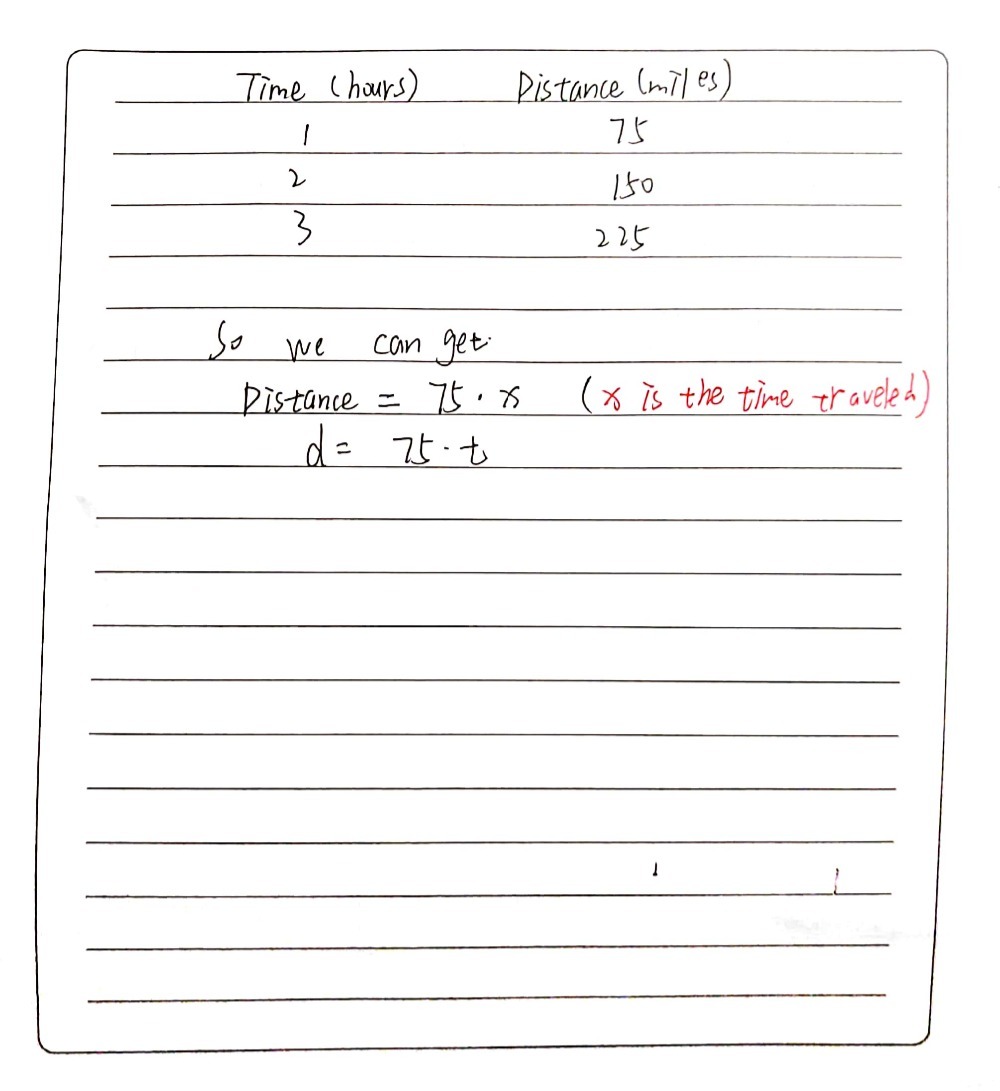 Time (hours) Distance (miles)
1 75
2 150
3 225
So we can get.
Distance = 75 · x (x is the time traveled)
d = 75 · t